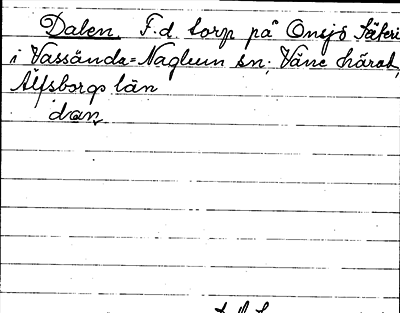 Dalen. F.d. torp på Onsjö Säteri
i Vassända-Naglum sn; Väne härad,
Älfsborgs län